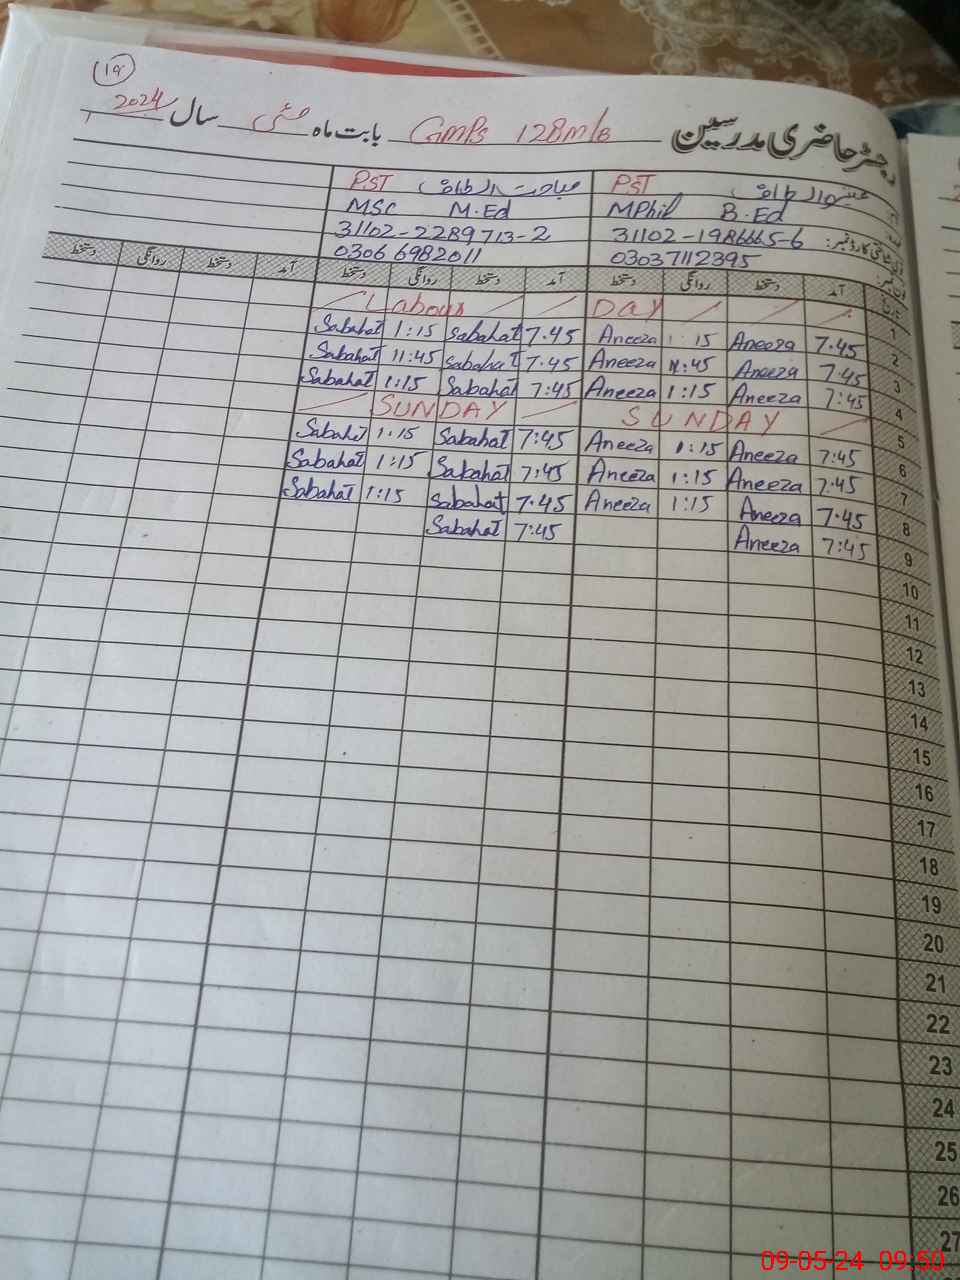 19
رجسٹر حاضری مدرسین GMPS 128m/B بابت ماہ مئی سال 2024
PST PST
MPhil B.Ed MSC M.Ed
31102-1986665-6 31102-2289713-2
03037112395 03066982011
تاریخ آمد دستخط روانگی دستخط آمد دستخط روانگی دستخط آمد دستخط روانگی دستخط
1 Labour DAY
2 7.45 Aneeza 1:15 Aneeza 7.45 Sabahat 1:15 Sabahat
3 7:45 Aneeza 11:45 Aneeza 7.45 Sabahat 11:45 Sabahat
4 7:45 Aneeza 1:15 Aneeza 7:45 Sabahat 1:15 Sabahat
5 SUNDAY SUNDAY
6 7:45 Aneeza 1:15 Aneeza 7:45 Sabahat 1:15 Sabahat
7 7:45 Aneeza 1:15 Aneeza 7:45 Sabahat 1:15 Sabahat
8 7.45 Aneeza 1:15 Aneeza 7.45 Sabahat 1:15 Sabahat
9 7:45 Aneeza 7:45 Sabahat
10
11
12
13
14
15
16
17
18
19
20
21
22
23
24
25
26
27
09-05-24 09:50